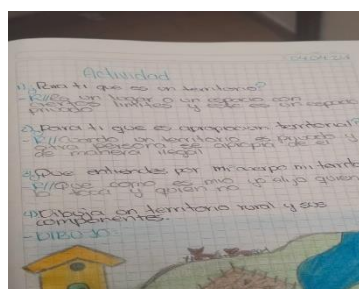 04 04 24
Actividad
1) Para ti que es un territorio?
- R// Es un lugar o un espacio con
ciertos limites y este es un espacio
privado
2) Para ti que es apropiacion territorial?
- R// Cuando un territorio es privado y
otra persona se apropia de el
de manera ilegal
3) Que entiendes por mi cuerpo mi territo
- R// Que como es mio yo elijo quien
lo toca y quien no
4) Dibuja un territorio rural y sus
componentes.
- DIBUJO